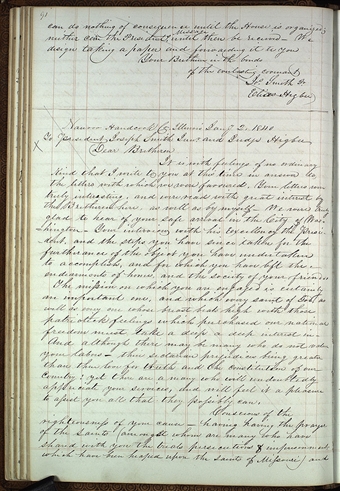 91
can do nothing of consequence until the House is organized;
neither can the President's message until then be receivd — We
design taking a paper and forwarding it to you
Your Brethren in the bonds
of the everlasting covenant
Js. Smith Jr.
Elias Higbee
Nauvoo Hancock Co. Illinois Jany 2. 1840
To President Joseph Smith Junr. and Judge Higbee
Dear Brethren
It is with feelings of no ordinary
kind that I write to you at this time in answer to
the letters with which we were favoured. Your letters were
truly interesting, and were read with great interest by
the Brethren here as well as by myself — We were
glad to hear of your safe arrival in the City of Wash-
ington — Your interview with his excellency the Presi-
dent, and the steps you have since taken for the
furtherance of the object you have undertaken
to accomplish, and for which you have left the
endearments of home, and the society of your friends
The mission on which you are engaged is certainly
an important one, and which every saint of God, as
well as every one whose breast beats high with those
patriotic feelings which purchased our national
freedom must take a deep a deep interest in
And although there may be many who do not value
your labors — their sectarian prejudices being greater
than their love for truth and the constitution of our
country; yet there are a many who will undoubtedly
appreciate your services, and will feel it a pleasure
to assist you all that they possibly can.
Conscious of the
righteousness of your cause — having having the prayers
of the saints (amongst whom are many who have
shared with you the trials persecutions & imprisonment
which have been heaped upon the saints of Missouri) and